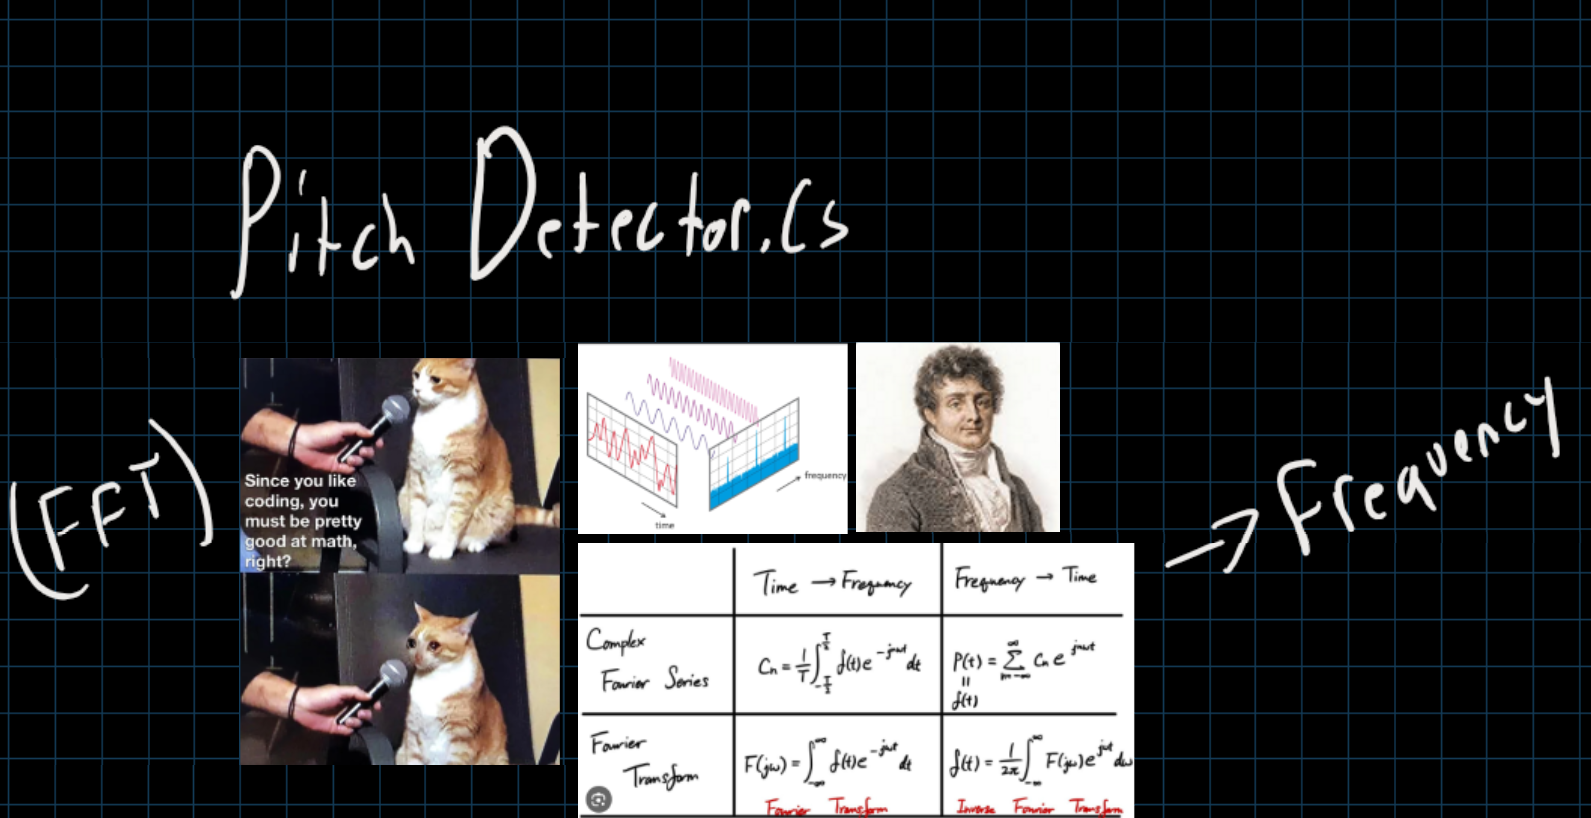 Pitch Detector.cs
(FFT)
Since you like
coding, you
must be pretty
good at math,
right?
time
frequency
→ Frequency
Time → Frequency
Frequency → Time
Complex
Fourier Series
Cn = 1/T ∫_{-T/2}^{T/2} f(t)e^{-jnωt} dt
P(t) = ∑_{n=-∞}^{∞} Cn e^{jnωt}
=
f(t)
Fourier
Transform
F(jω) = ∫_{-∞}^{∞} f(t)e^{-jωt} dt
f(t) = 1/2π ∫_{-∞}^{∞} F(jω)e^{jωt} dω
Fourier Transform
Inverse Fourier Transform